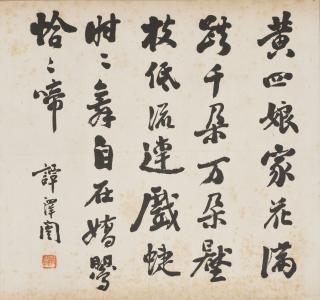 黄四娘家花滿
蹊千朵万朵壓
枝低流連戲蜨
時〻舞自在嬌鶯
恰〻啼
譚澤闓